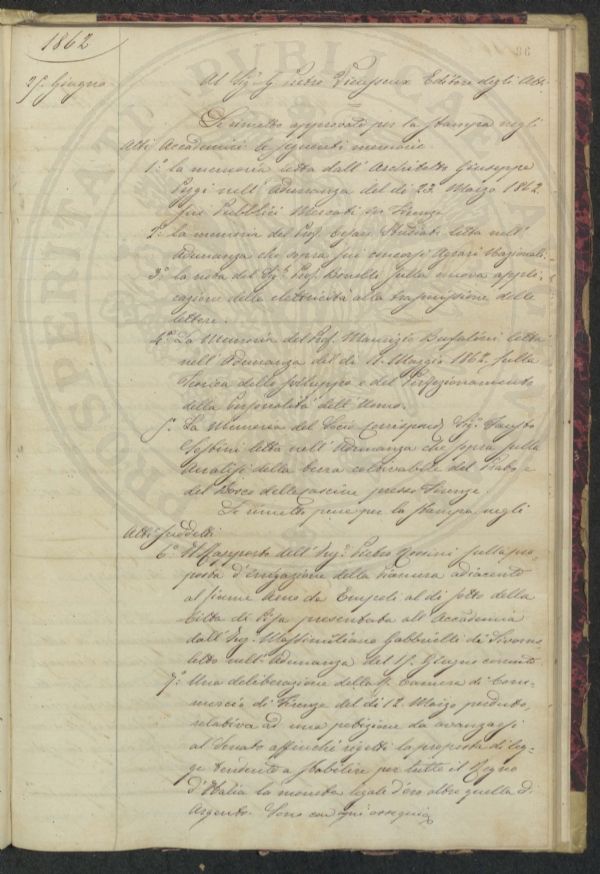 1862
96
25. Giugno
Al Sig. G. Pietro Vieusseux Editore degli Atti
Si rimettono approvate per la stampa negli
Atti Accademici le seguenti memorie
1.° la memoria letta dall' Architetto Giuseppe
Pugi nell' Adunanza del dì 23 Marzo 1862
sui Pubblici Mercati in Firenze
2.° la memoria del Prof. Cesare Studiati letta nell'
Adunanza che sopra sui concorsi Agrari Nazionali
3.° la nota del Sig.r Prof. Donelli sulla nuova appli-
cazione della elettricità alla trasmissione delle
lettere.
4.° La Memoria del Prof. Maurizio Bufalini letta
nell' Adunanza del dì 11. Maggio 1862. sulla
Teorica dello sviluppo e del Perfezionamento
della Personalità dell' Uomo.
5.° La Memoria del Socio Corrispond. Sig.r Fausto
Sestini letta nell' Adunanza che sopra sulla
Analisi della terra coltivabile del Prato e
del Bosco delle cascine presso Firenze.
Si rimette pure per la stampa negli
Atti suddetti
6.° Il Rapporto dell' Ing.r Pietro Rossini sulla pro-
posta d' Irrigazione della Pianura adiacente
al fiume Arno da Empoli al di sotto della
Città di Pisa presentata all' Accademia
dall' Ing. Massimiliano Gabbrielli di Livorno
letto nell' Adunanza del 15. Giugno corrente
7.° Una deliberazione della R. Camera di Com-
mercio di Firenze del dì 12. Marzo perduto,
relativa ad una petizione da avanzarsi
al Senato affinchè rigetti la proposta di leg-
ge tendente a stabilire per tutto il Regno
d' Italia la moneta legale d'oro oltre quella d'
Argento. Sono con ogni ossequio